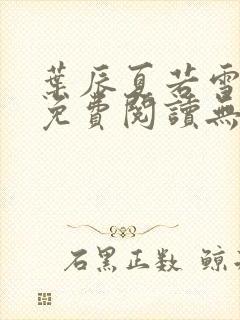 葉辰夏若雪
免費閱讀無
石黑正数 鲸